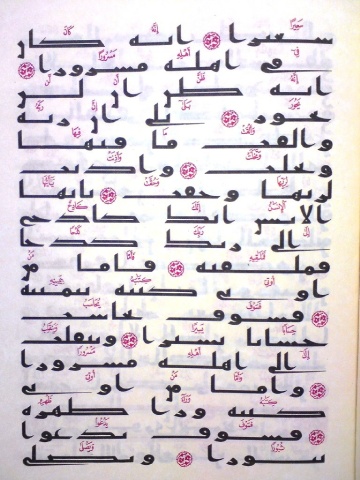 سعيرا انه كان
في اهله مسرورا
انه ظن ان لن
يحور بلى ان ربه
والقت ما فيها
وتخلت واذنت
لربها وحقت يايها
الانسن انك كادح
الى ربك كدحا
فملقيه فاما من
اوتي كتبه بيمينه
فسوف يحاسب
حسابا يسيرا وينقلب
الى اهله مسرورا
واما من اوتي
كتبه ورا ظهره
فسوف يدعوا
ثبورا ويصلى